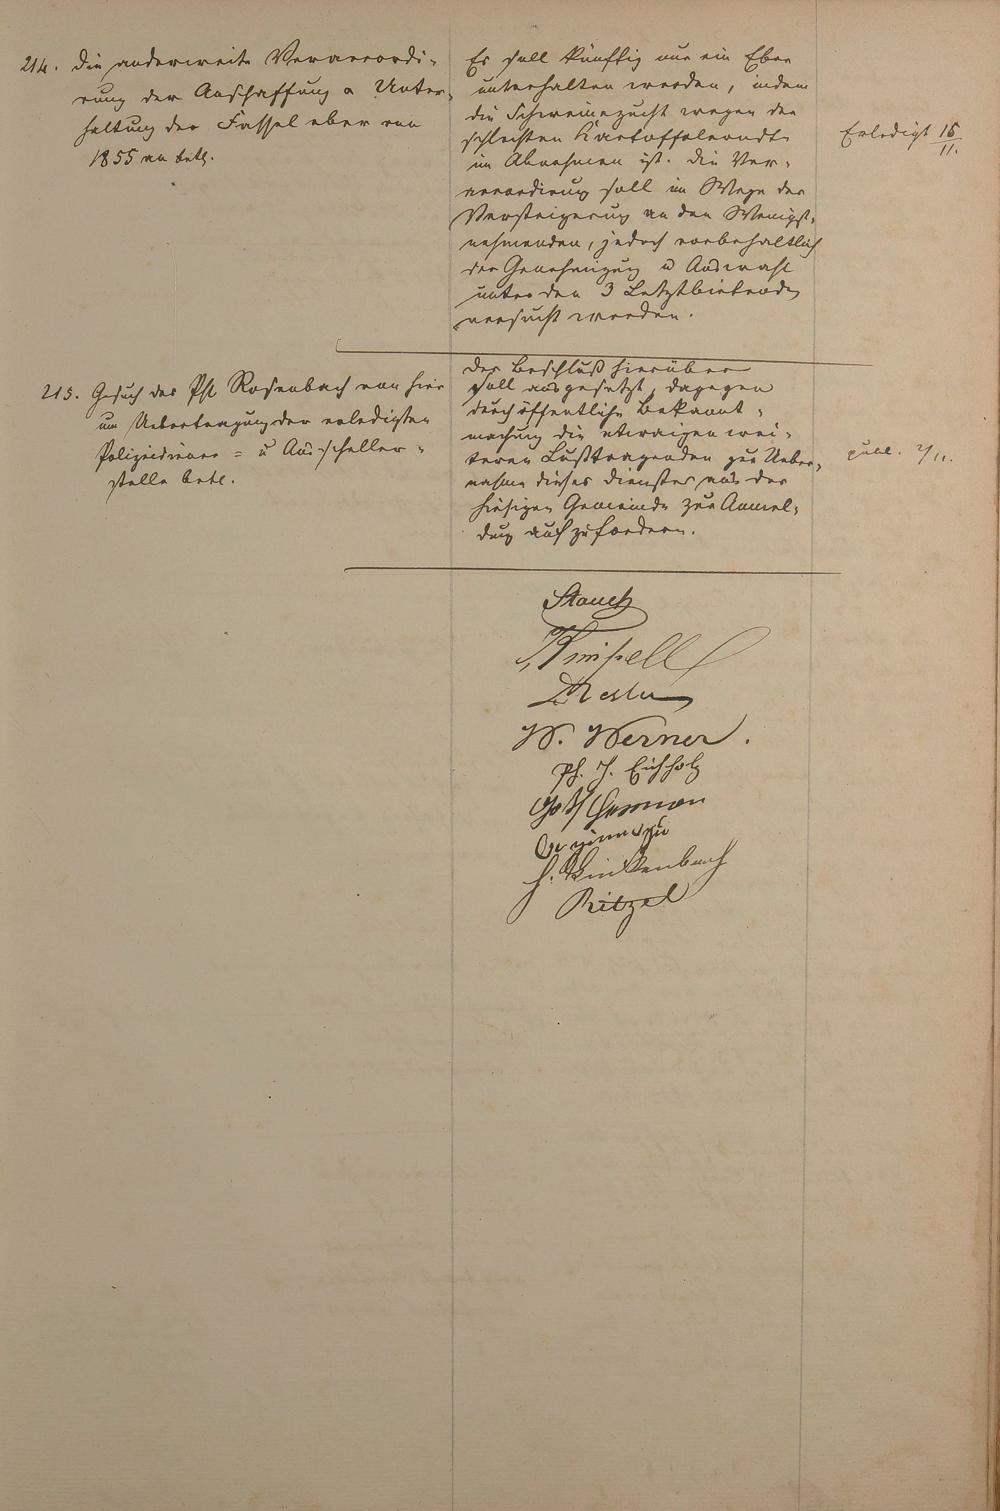 214. Die anderweite Veraccordi-
rung der Anschaffung u Unter-
haltung der Fassel eber von
1855 an betr.
Es soll künftig nur ein Eber
unterhalten werden, indem
die Schweinezucht wegen der
schlechten Kartoffelerndte
im Abnehmen ist. Die Ver-
accordirung soll im Wege der
Versteigerung an den Wenigst-
nehmenden, jedoch vorbehaltlich
der Genehmigung u Auswahl
unter den 3 Letztbietenden
versucht werden.
Erledigt 15/11.
215. Gesuch des Phl Rosenbach von hier
um Uebertragung der erledigten
Polizeidiener = u Ausscheller-
stelle betr.
Der Beschluß hierüber
soll ausgesetzt, dagegen
durch öffentliche Bekannt-
machung die etwaigen wei-
teren Lusttragenden zur Ueber-
nahme dieses Dienstes aus der
hiesigen Gemeinde zur Anmel-
dung aufzufordern.
publ. 2/11.
Stauch
Knipell
W. Werner.
Ph. J. Eichholz
H. Winkenbach
Ritzel